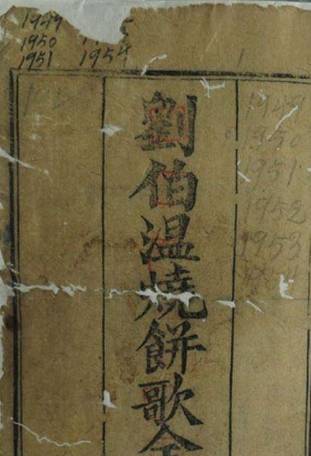 1949
1950
1951
1954
劉伯温燒餅歌全
1949
1950
1951
1952
1953